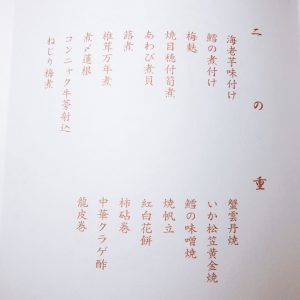 二の重
海老芋味付け
鱈の煮付け
梅麸
焼目穂付筍煮
あわび煮貝
蕗煮
椎茸万年煮
煮〆蓮根
コンニャク牛蒡射込
ねじり梅煮
蟹雲丹焼
いか松笠黄金焼
鱈の味噌焼
焼帆立
紅白花餅
柿砧巻
中華クラゲ酢
龍皮巻